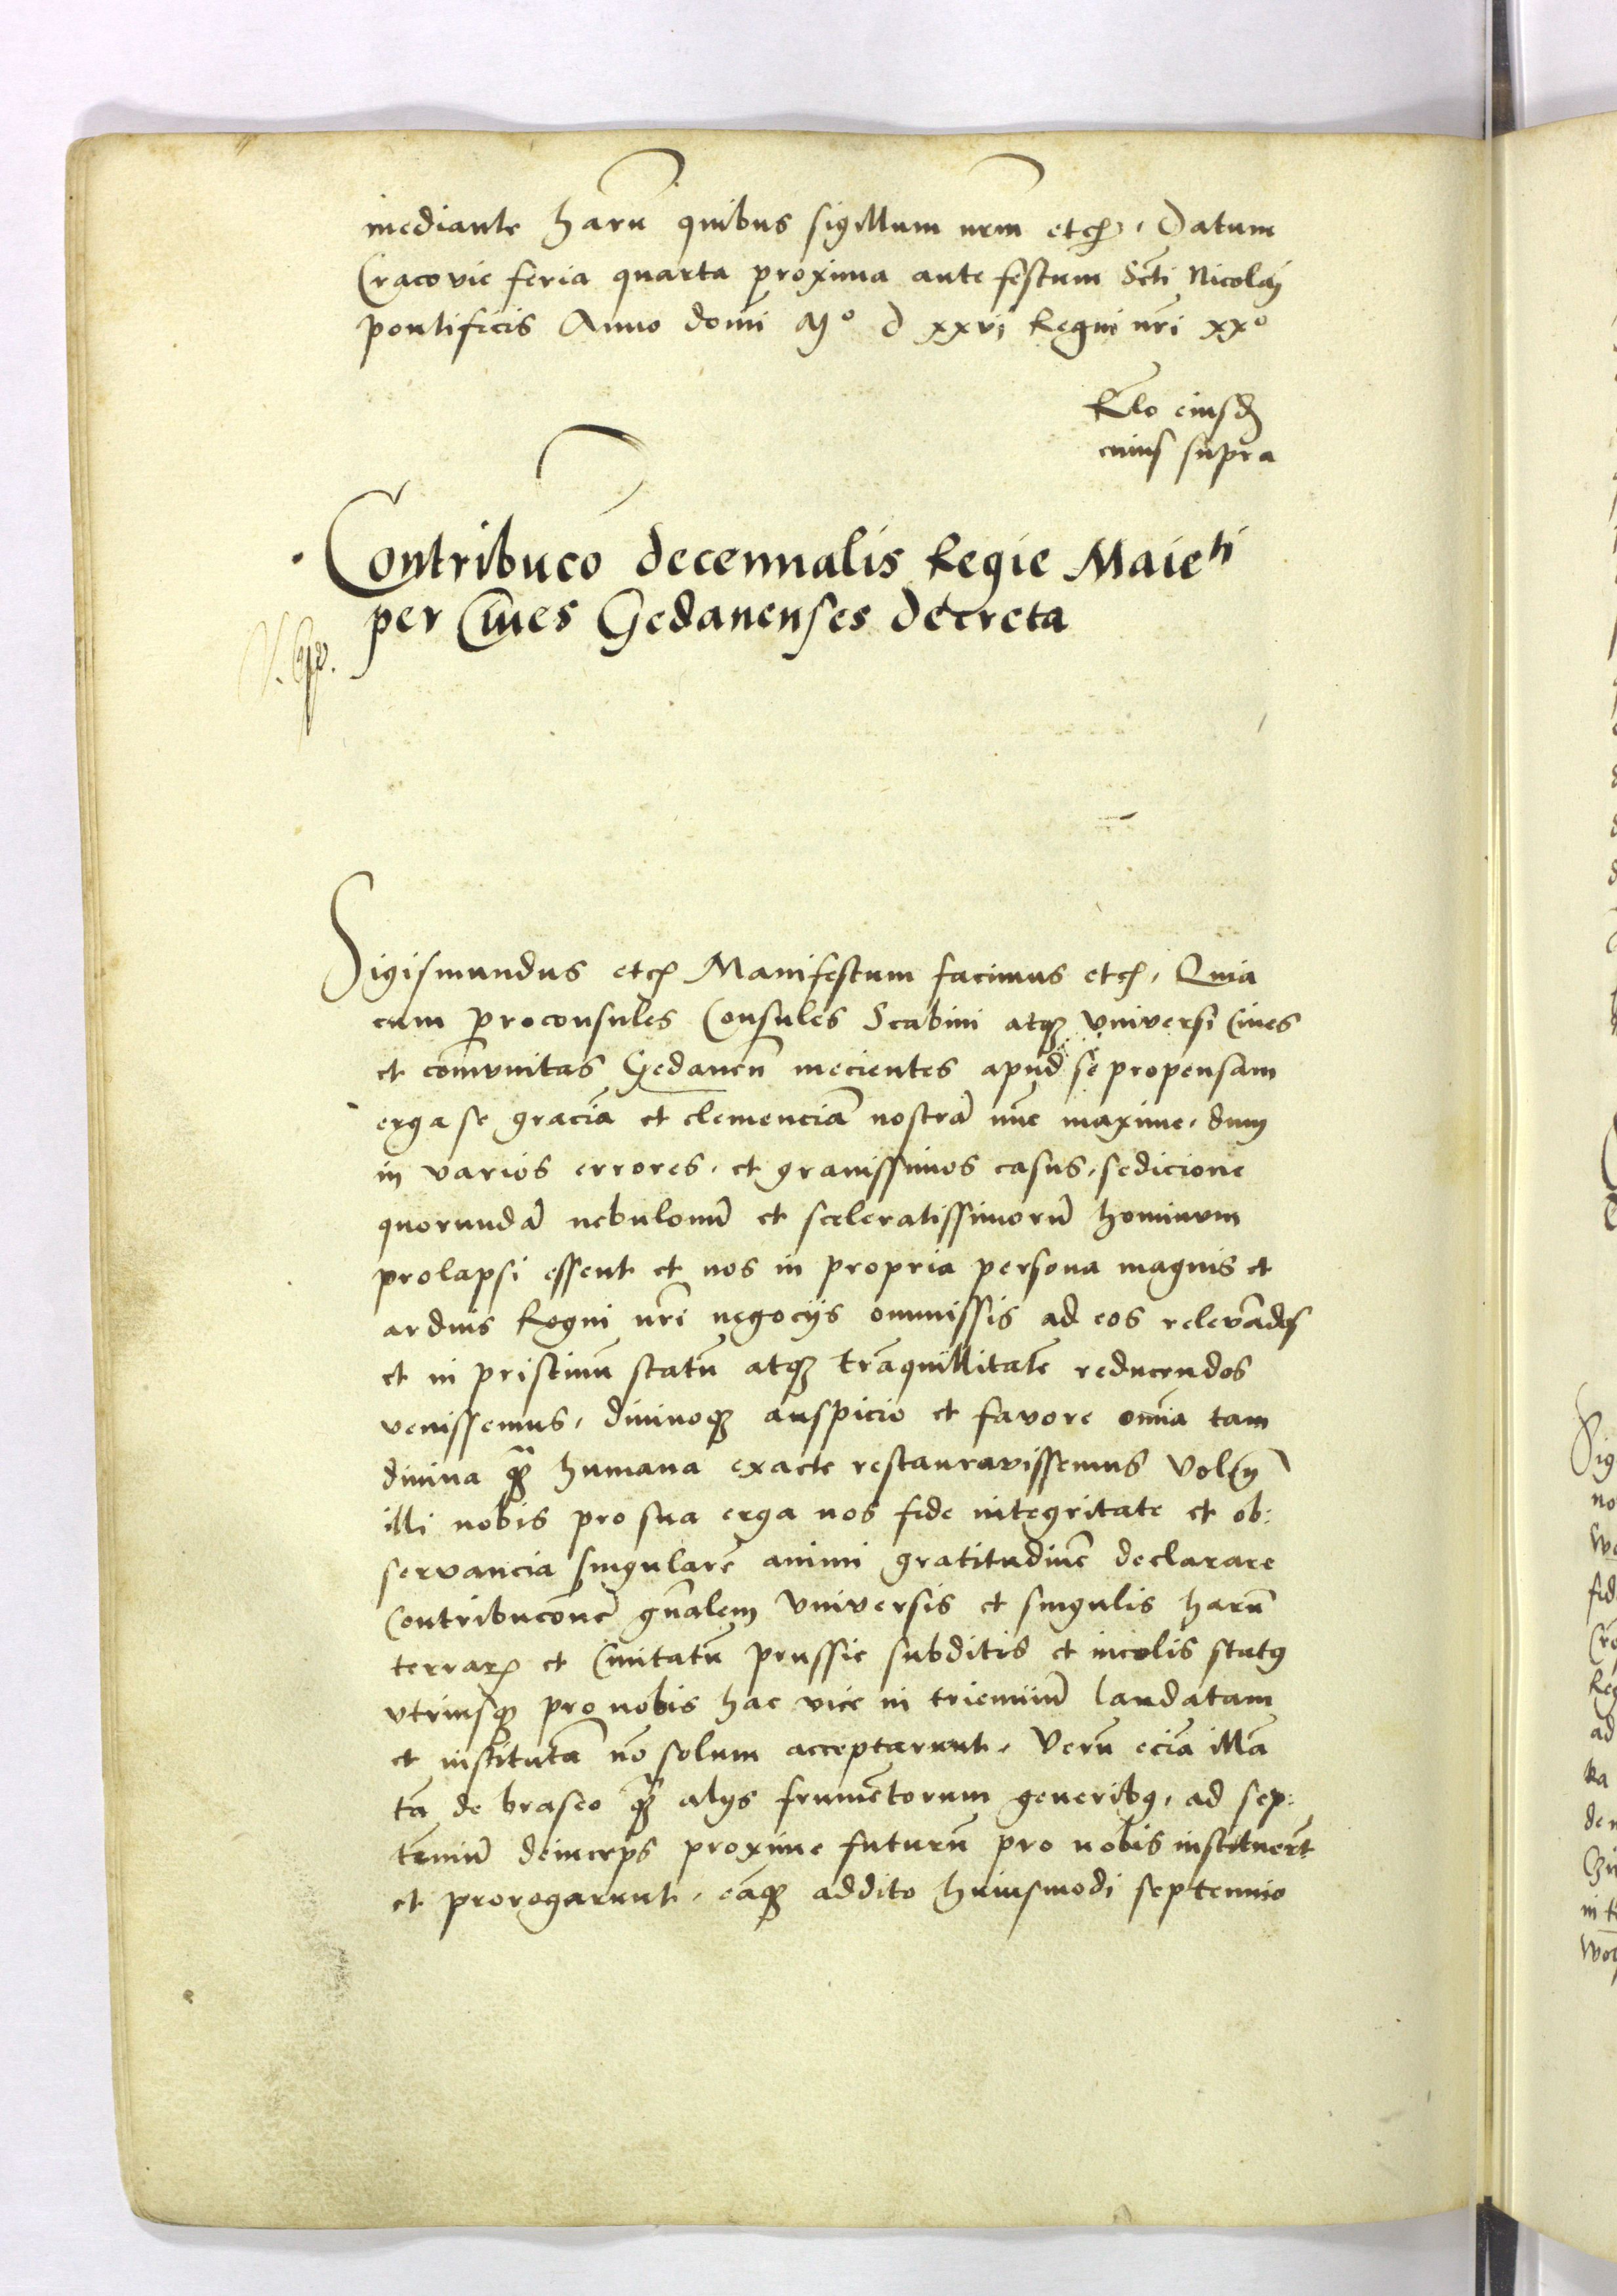 mediante harū quibus sigillum nrm̄ etc̃. Datum
Cracovie feria quarta proxima ante festum Scti Nicolaj
pontificis Anno domī Mº d xxvj Regni nr̄i xxº
Rl̃o eiusd̃
cuius supra
Contribuc̃o decennalis Regie Maietti
per Ciues Gedanenses decreta
Sigismundus etc̃ Manifestum facimus etc̃. Quia
cum proconsules Consules Scabini atq̃ vniversi Ciues
et com̄vnitas Gedaneñ mecientes apud se propensam
erga se graciā et clemenciā nostrā nūc maxime, dum
in varios errores, et grauissimos casus, sedicione
quorundā nebulonū et sceleratissimorū hominvm
prolapsi essent et nos in propria persona magnis et
arduis Regni nr̄i negocijs ommissis ad eos relevādos
et in pristinū statū atq̃ trāquillitatē reducendos
venissemus, diuinoq̃ auspicio et favore om̄ia tam
diuina q̃ humana exacte restauravissemus Voleñ
illi nobis pro sua erga nos fide integritate et ob:
servancia singularē animi gratitudinē declarare
Contribuc̃onē gn̄alem Vniversis et singulis harū
terrar̃ et Ciuitatū prussie subditis et incolis status
vtriusq̃ pro nobis hac vice in trienniū laudatam
et institutā nō solum acceptarunt. Verū eciā illā
tā de braseo q̃ alijs frumētorum generibus, ad sep:
tenniū deinceps proxime futurū pro nobis instituerūt
et prorogarunt, eāq̃ addito huiusmodi septennio